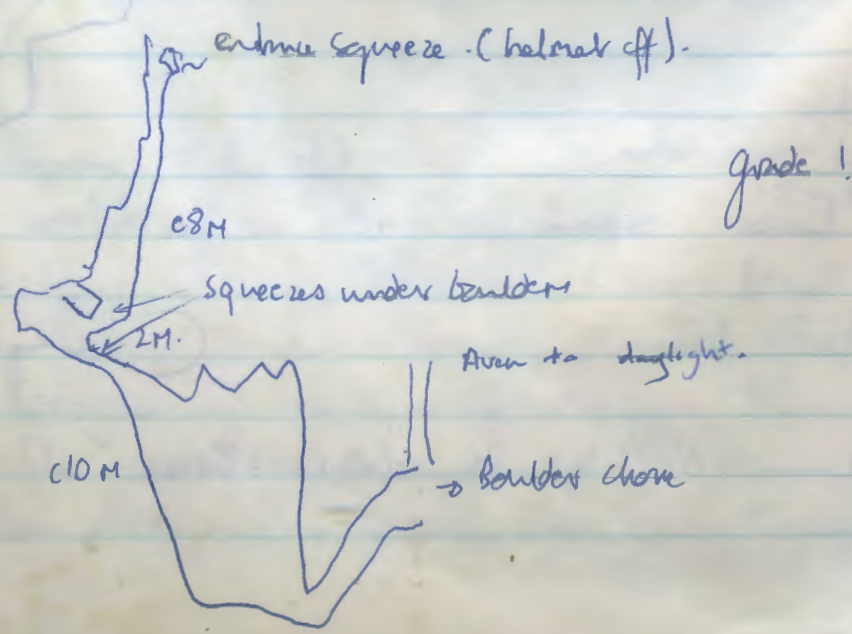 entrance squeeze. (helmet off).
grade 1
c8M
Squeezes under boulders
2M.
Aven to daylight.
c10M
→ Boulder choke